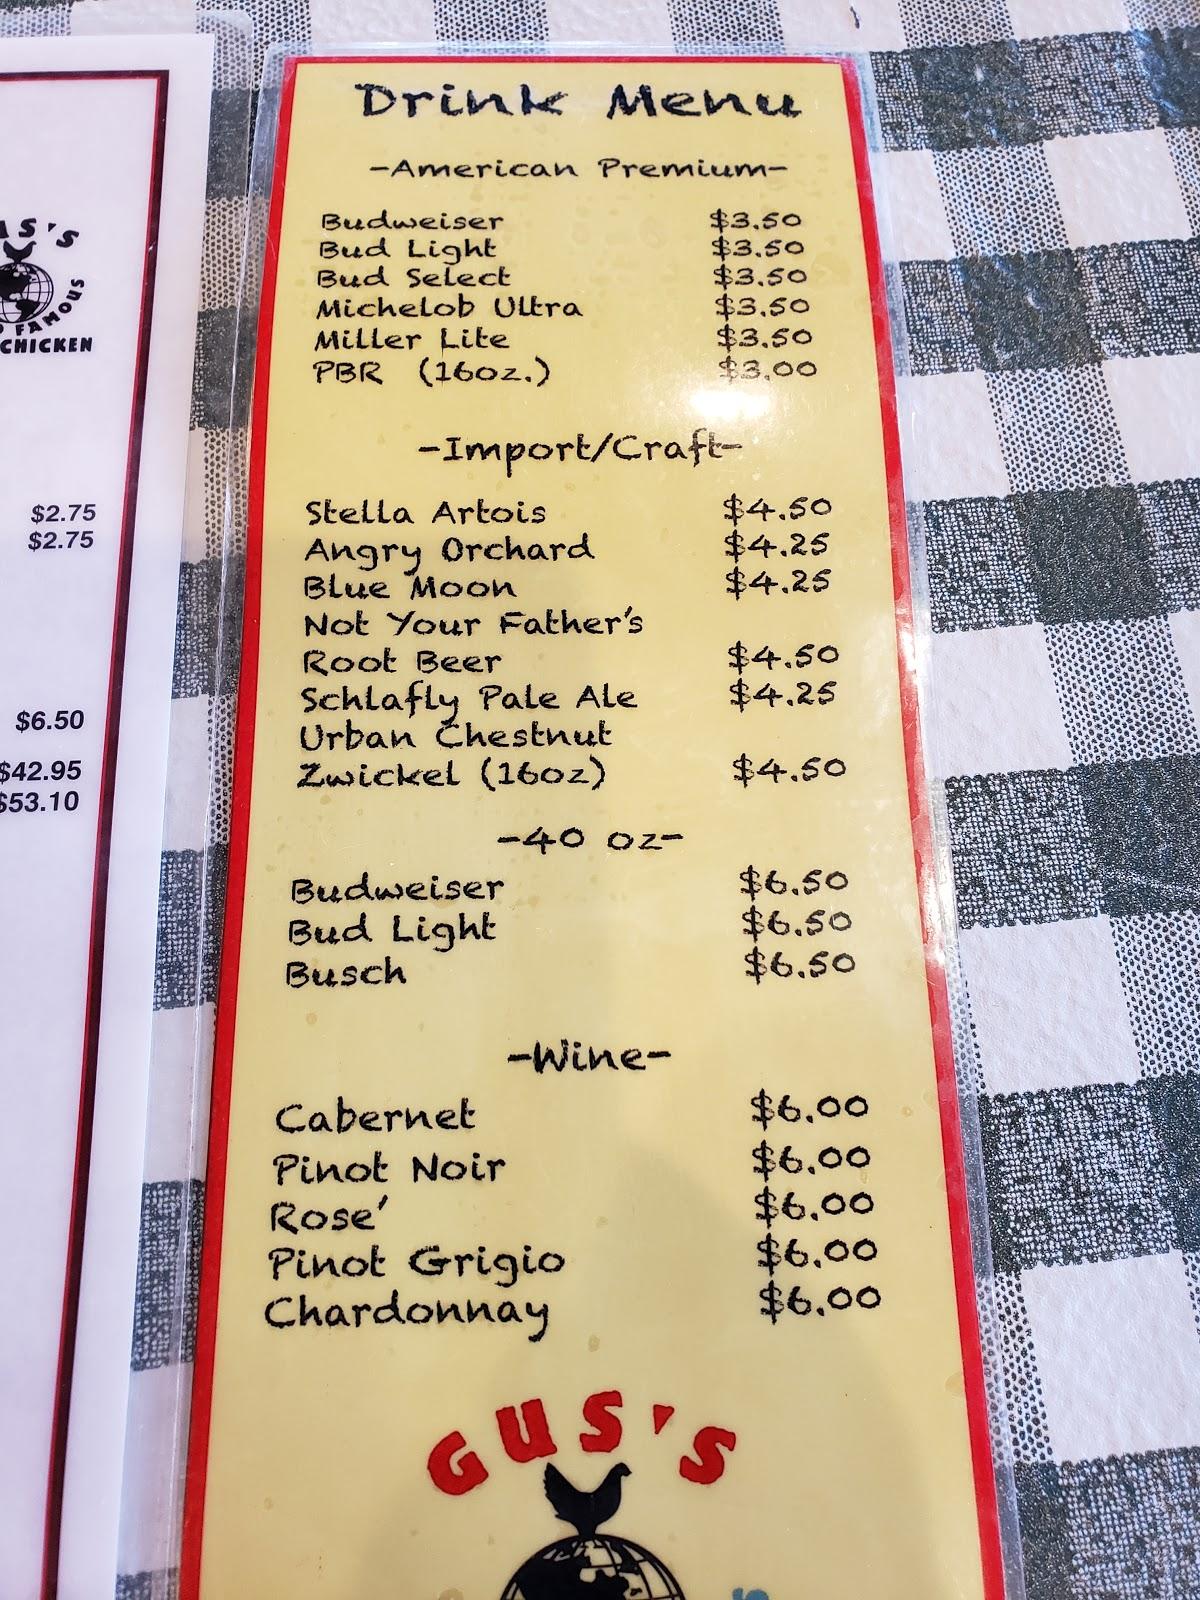 GUS'S
FAMOUS
CHICKEN
$2.75
$2.75
$6.50
$42.95
$53.10
Drink Menu
-American Premium-
Budweiser $3.50
Bud Light $3.50
Bud Select $3.50
Michelob Ultra $3.50
Miller Lite $3.50
PBR (16oz.) $3.00
-Import/Craft-
Stella Artois $4.50
Angry Orchard $4.25
Blue Moon $4.25
Not Your Father's
Root Beer $4.50
Schlafly Pale Ale $4.25
Urban Chestnut
Zwickel (16oz) $4.50
-40 oz-
Budweiser $6.50
Bud Light $6.50
Busch $6.50
-Wine-
Cabernet $6.00
Pinot Noir $6.00
Rose' $6.00
Pinot Grigio $6.00
Chardonnay $6.00
GUS'S